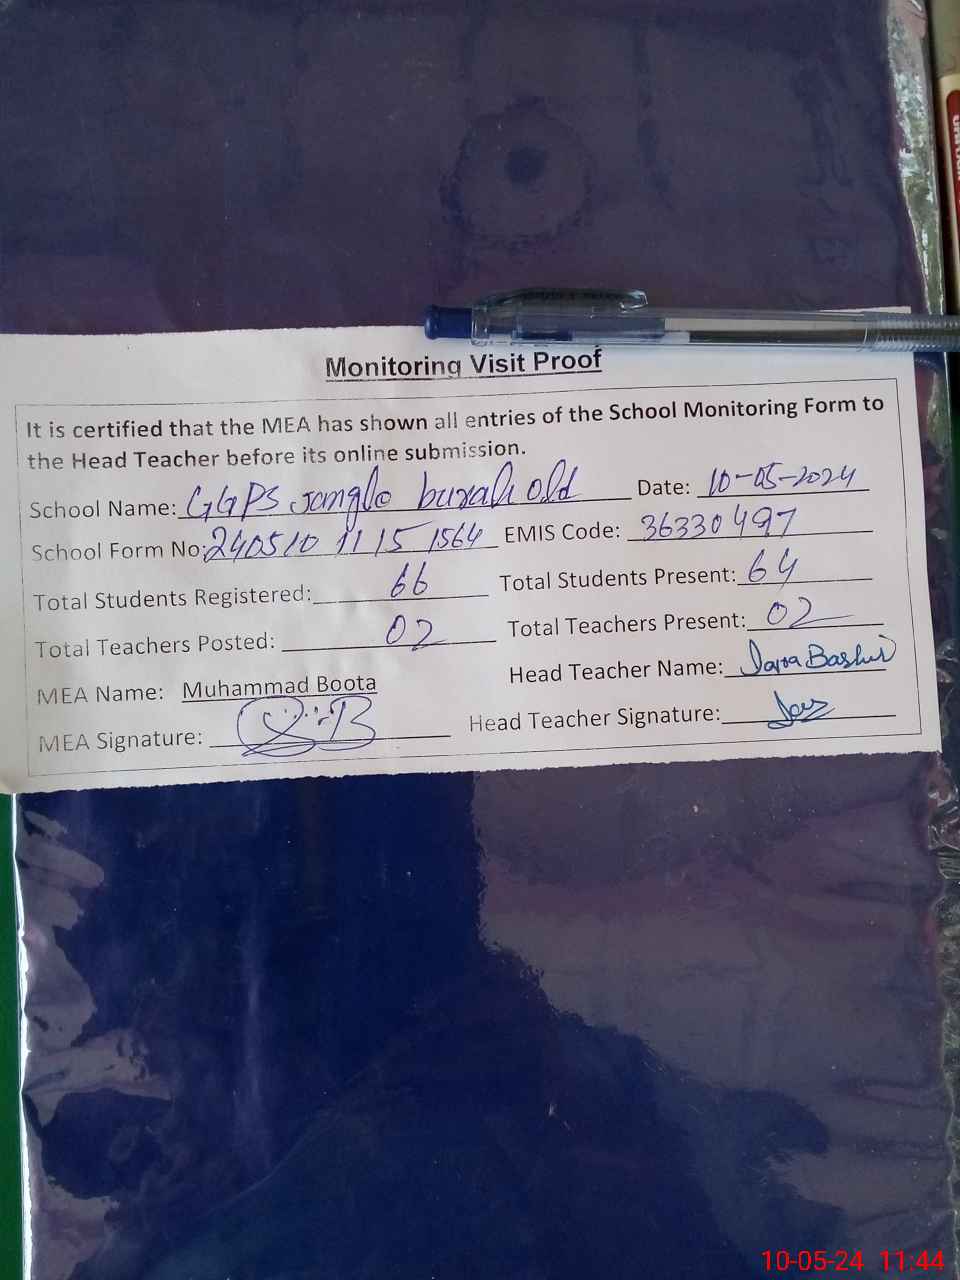 Monitoring Visit Proof
It is certified that the MEA has shown all entries of the School Monitoring Form to
the Head Teacher before its online submission.
School Name: GGPS Jangla burah old Date: 10-05-2024
School Form No: 240510 11 15 1564 EMIS Code: 36330497
Total Students Registered: 66 Total Students Present: 64
Total Teachers Posted: 02 Total Teachers Present: 02
MEA Name: Muhammad Boota Head Teacher Name: Bashir
MEA Signature: Head Teacher Signature:
10-05-24 11:44